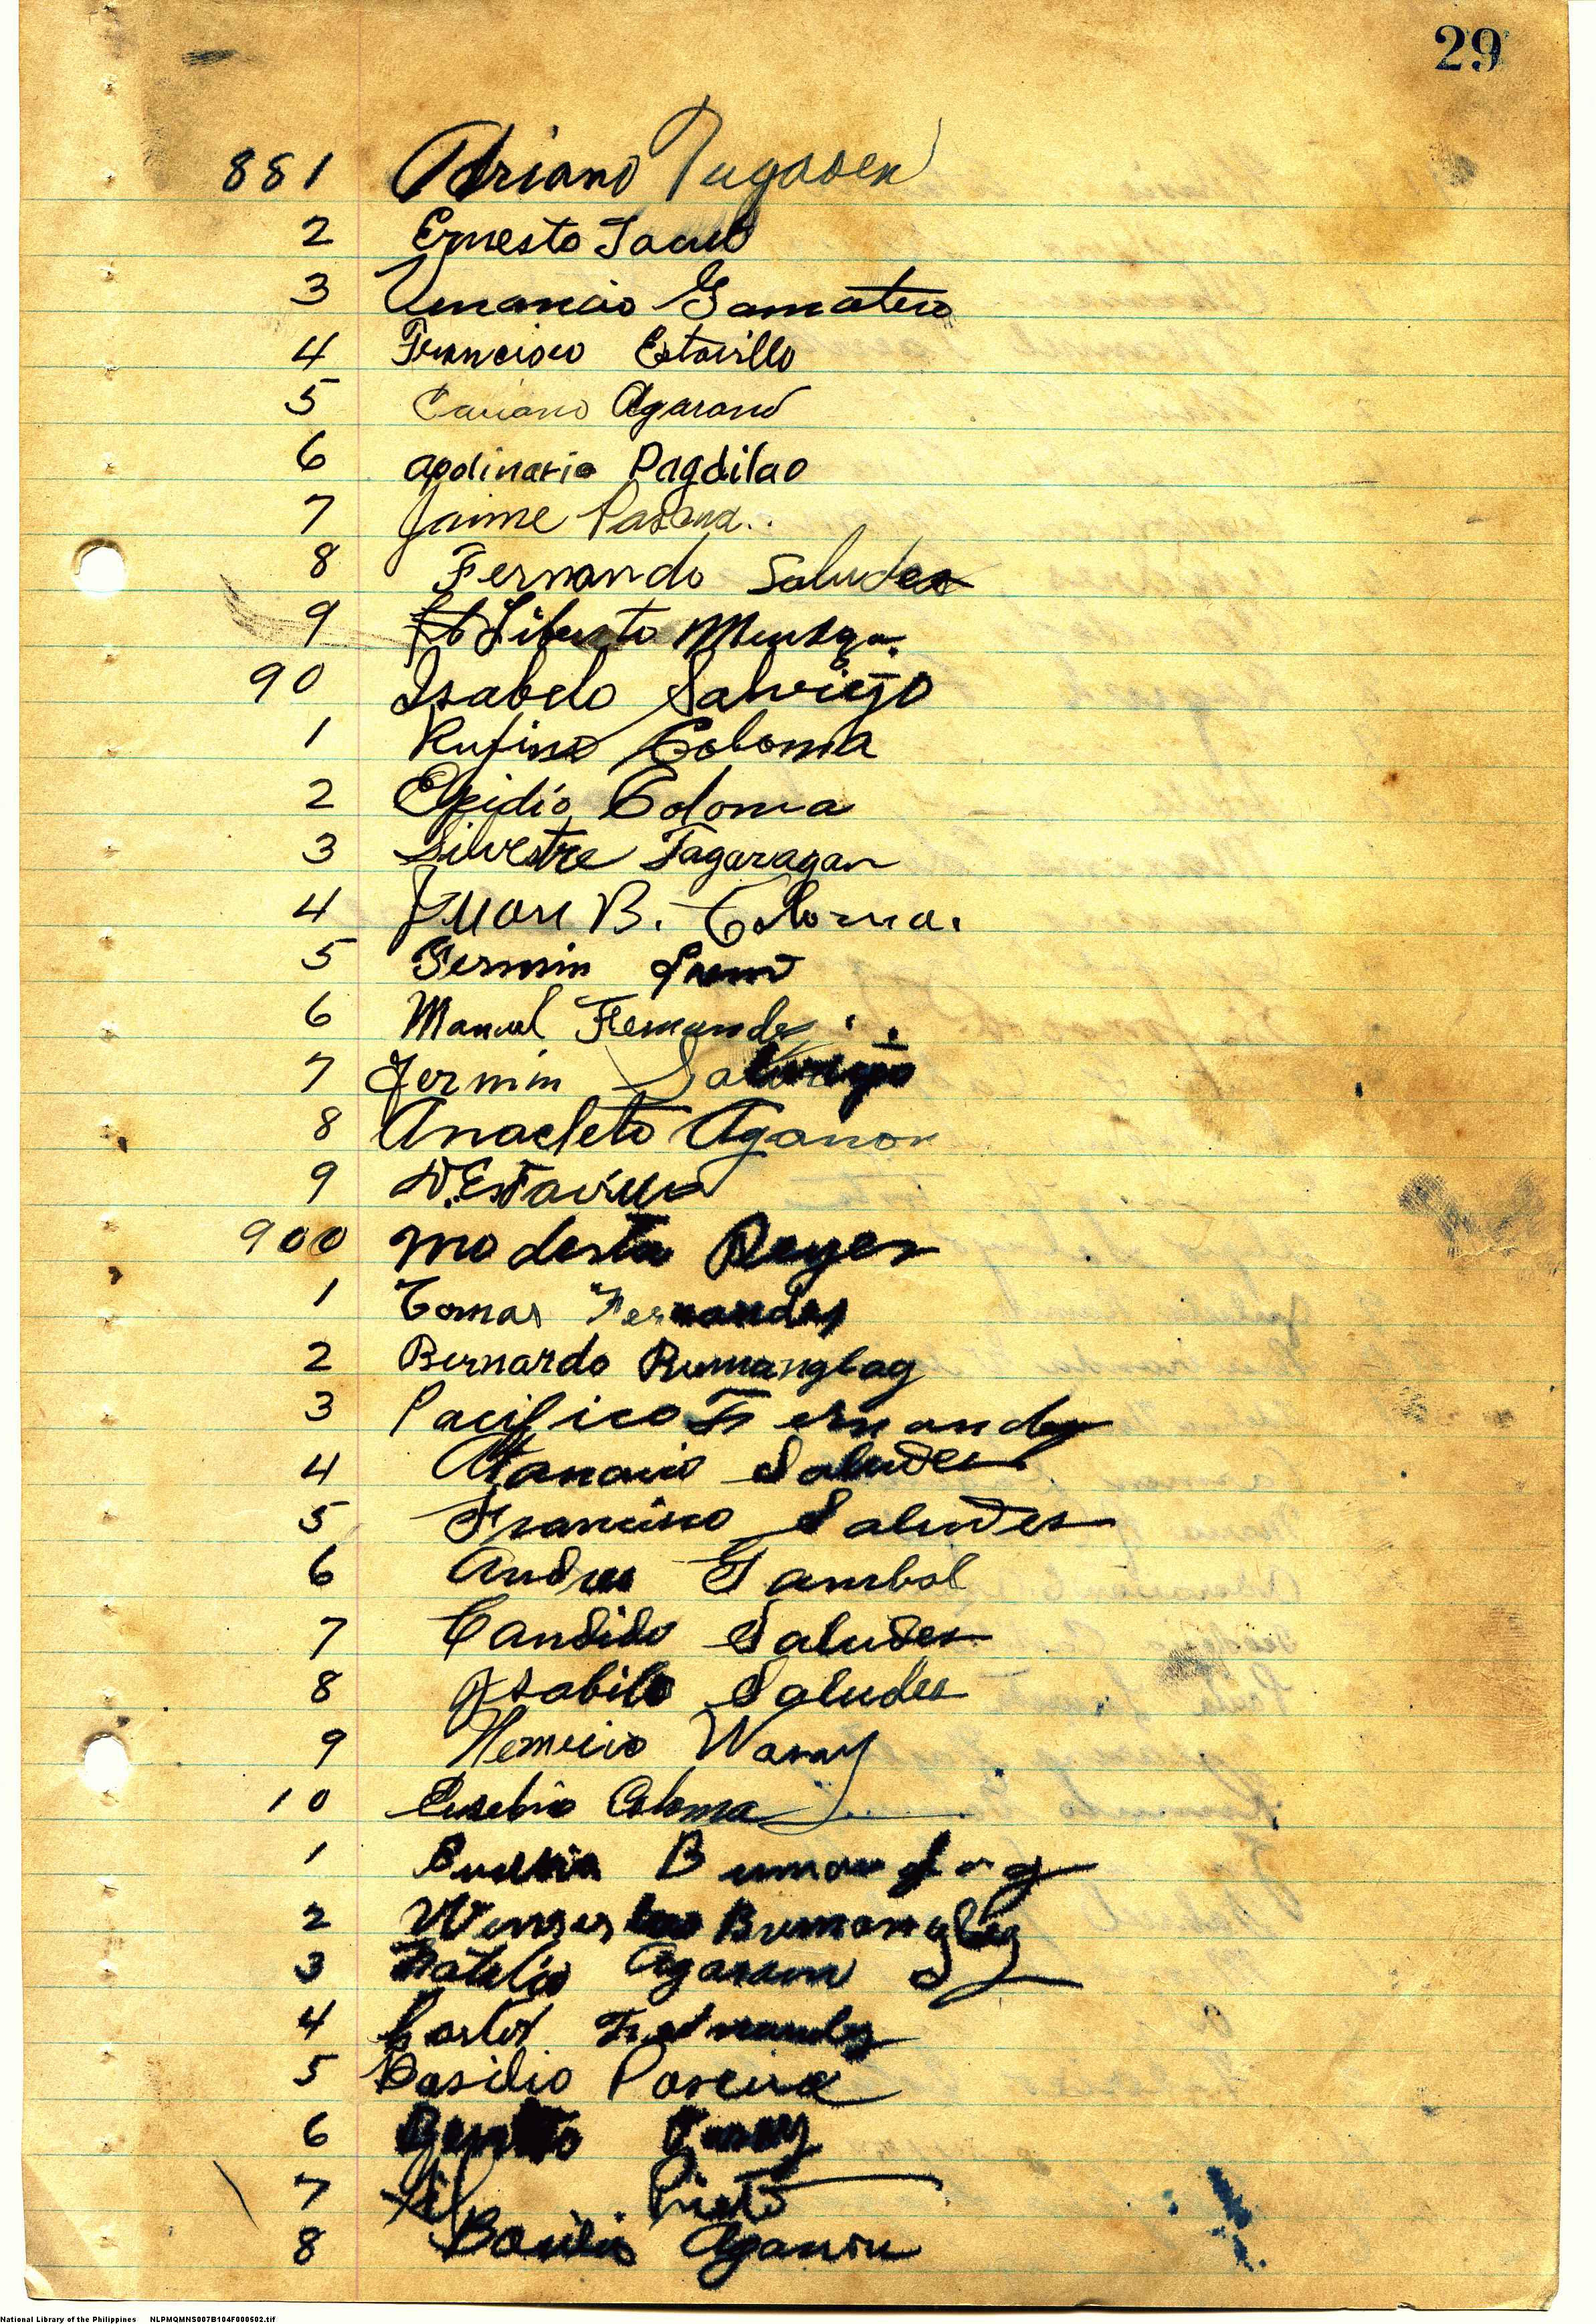 29
881 Adriano Pugasen
2 Ernesto
3 Venancio Gamatero
4 Francisco Estavillo
5 Agarano
6 apolinario Pagdilao
7 Jaime
8 Fernando Saludes
9 Liberto
90 Isabelo Salviejo
1 Rufino Coloma
2 Elpidio Coloma
3 Silvestre Tagaragan
4 Juan B. Coloma.
5 Fermin
6 Manuel Fernandez
7 Fermin Salviejo
8 Anacleto Aganon
9 D. Estavillo
900 modesta Reyes
1 Tomas Fernandes
2 Bernardo Bumanglag
3 Pacifico Fernandez
4 Atanacio Saludes
5 Francisco Saludes
6 Andres Gambol
7 Candido Saludes
8 Isabilo Saludes
9 Nemecio
10 Eusebio Coloma
1 Bumanglag
2 Wenseslao Bumanglag
3 Natalio
4 Carlos Fernandez
5 Basilio
6
7 Gil Prieto
8 Basilio Aganon
National Library of the Philippines NLPMQMNS007B104F000502.tif